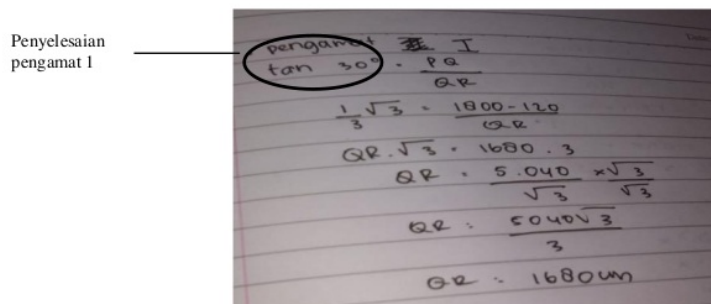 Penyelesaian
pengamat 1
pengamat I
tan 30° = PQ/QR
1/3 √3 = 1800-120/QR
QR.√3 = 1680.3
QR = 5.040/√3 × √3/√3
QR = 5040√3/3
QR = 1680cm